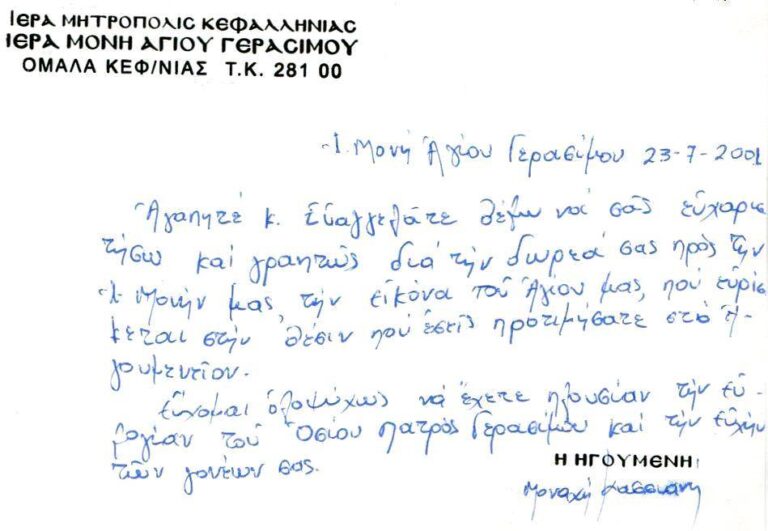 ΙΕΡΑ ΜΗΤΡΟΠΟΛΙΣ ΚΕΦΑΛΛΗΝΙΑΣ
ΙΕΡΑ ΜΟΝΗ ΑΓΙΟΥ ΓΕΡΑΣΙΜΟΥ
ΟΜΑΛΑ ΚΕΦ/ΝΙΑΣ Τ.Κ. 281 00
Ἱ. Μονή Ἁγίου Γερασίμου 23-7-2001
Ἀγαπητέ κ. Εὐαγγελᾶτε θέλω νά σᾶς εὐχαρισ
τήσω καί γραπτῶς διά τήν δωρεά σας πρὸς τὴν
Ἱ. Μονήν μας, τήν εἰκόνα τοῦ Ἁγίου μας, πού εὑρίσ
κεται στήν θέσιν πού ἐσεῖς προτιμήσατε στό Ἡ-
γουμενεῖον.
Εὔχομαι ὁλοψύχως νά ἔχετε πλουσίαν τήν εὐ-
λογίαν τοῦ Ὁσίου Πατρὸς Γερασίμου καί τήν εὐχήν
τῶν γονέων σας.
Η ΗΓΟΥΜΕΝΗ
Μοναχή Κασσιανή